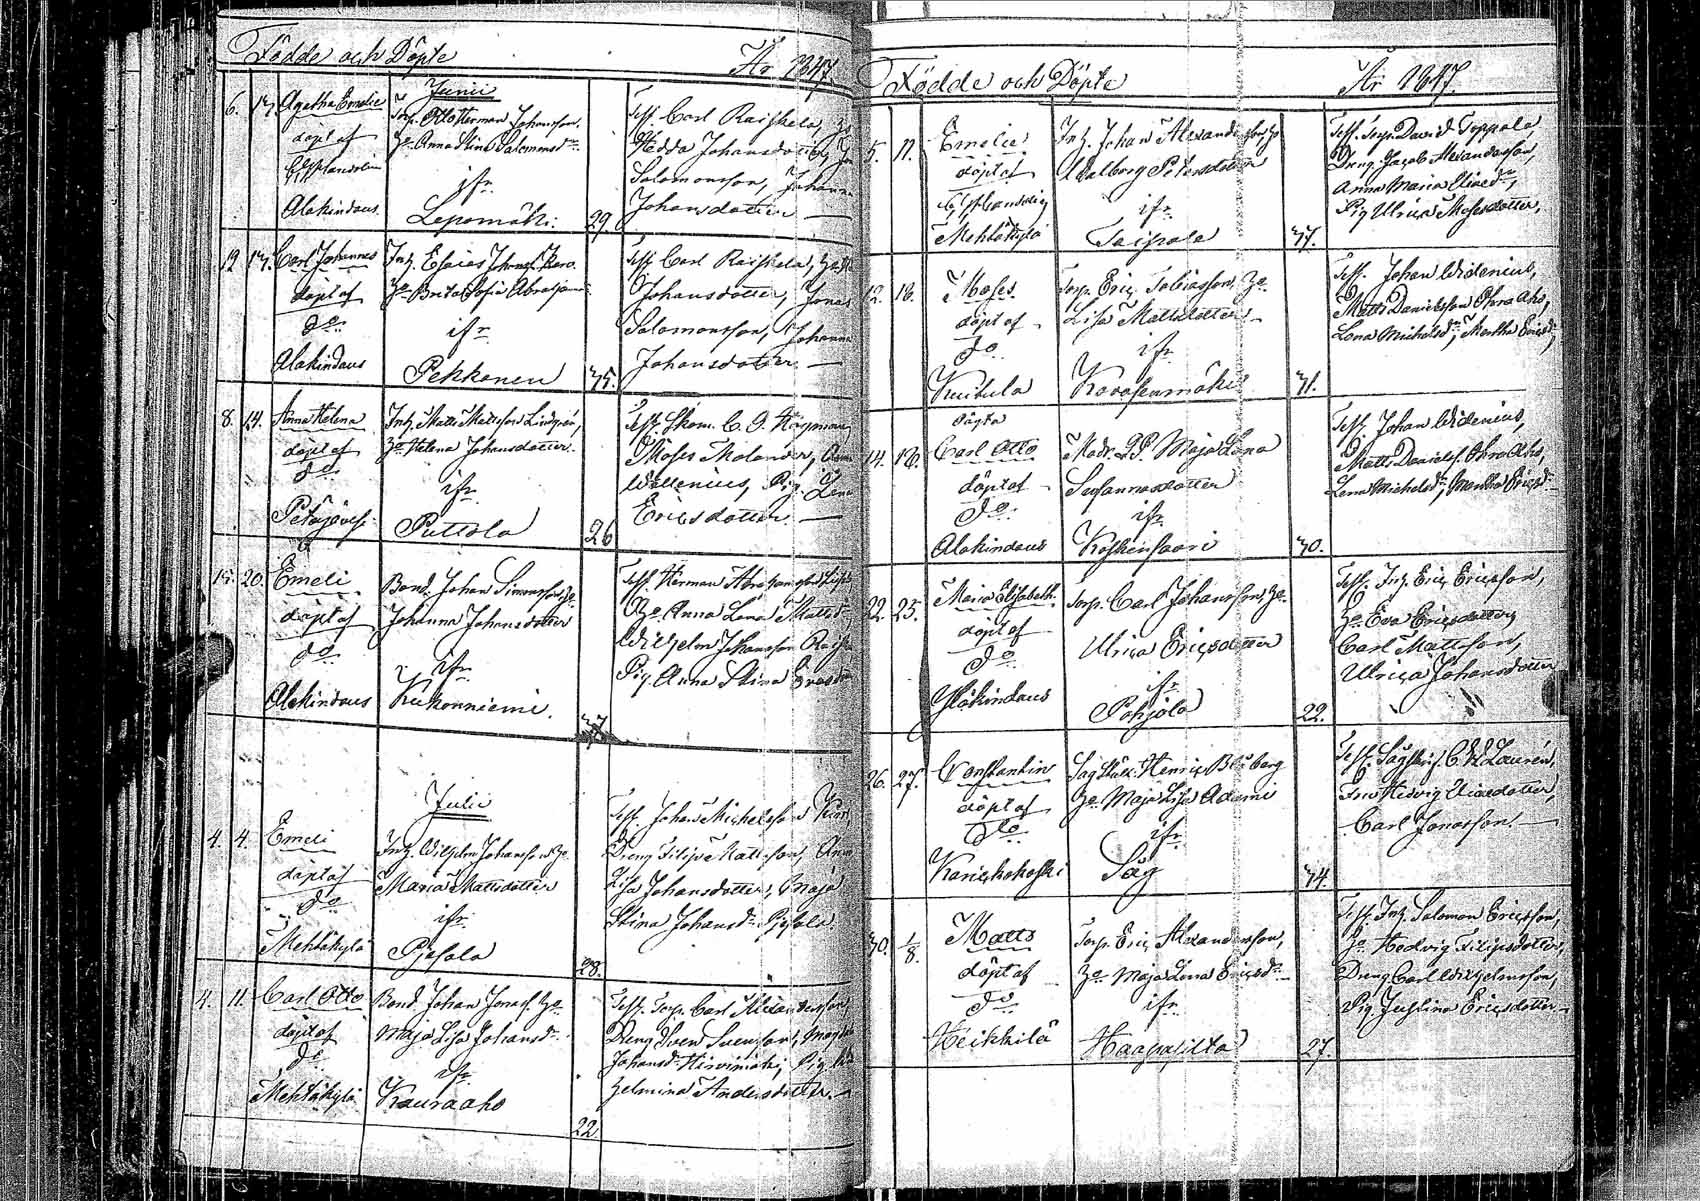 Födde och Döpte År 1847
Junii
6. 17. Agatha Emelie
döpt af
Alakindaus
Torp. Otto Herman Johansson,
Hu Anna Stina Salomonsdr
ifr
Lepomäki
29
Test. Carl Raiskela,
Hedda Johansdotter,
Salomonsson, Johanna
Johansdotter
12 17. Carl Johannes
döpt af
do
Alakindaus
Inh. Esaias
Brita Sofia
ifr
Pekkanen
35.
Test. Carl Raiskela,
Johansdotter, Jonas
Salomonsson, Johanna
Johansdotter
8. 14. Anna Helena
döpt af
do
Inh. Matts Mattsson Lindgrén,
Hu Helena Johansdotter
ifr
Puttola
26
Test. Skom. C. O.
Moses Molander,
Wallenius, Pig. Lena
Ericsdotter
15. 20. Emeli
döpt af
do
Alakindaus
Bond. Johan Simonsson, Hu
Johanna Johansdotter
ifr
Kukonniemi.
Test. Herman Abrahamsson
Hu Anna Lena Matts
Wilhelm Johansson
Pig. Anna Stina
Julii
4. 4. Emeli
döpt af
do
Mehtäkylä
Inh. Wilhelm Johansson Hu
Maria Mattsdotter
ifr
Pjesala
28.
Test. Johan Michelsson
Dreng Filip Mattsson,
Lisa Johansdotter, Maja
Stina Johansdr
4. 11. Carl Otto
döpt af
do
Mehtäkylä
Bond. Johan Jonass. Hu
Maja Lisa Johansdr
ifr
Kauraaho
22
Test. Torp. Carl Alexandersson,
Dreng Sven Svensson,
Johansdr Hirvimäki, Pig
Zelmina Andersdotter.
Födde och Döpte År 1847
5. 11. Emelie
döpt af
Mehtäkylä
Inh. Johan Alexandersson Hu
Walborg Petersdotter
ifr
Taipale
37.
Test. Torp. David Toppala,
Dreng Jacob Alexandersson,
Anna Maria
Pig Ulrica Mosesdotter,
12. 18. Moses
döpt af
do
Kuitula
Torp. Eric Tobiasson, Hu
Lisa Mattsdotter
ifr
Korvasenmäki
31.
Test. Johan Widenius,
Matts Danielsson Ohra Aho,
Lena Michelsdr, Martha Ericsdr,
oäkta
14. 18. Carl Otto
döpt af
do
Alakindaus
Modr. Q. P. Maja Lena
Susannasdotter
ifr
Koskensaari
30.
Test. Johan Widenius,
Matts Daniels. Ohra Aho,
Lena Michelsdr, Martha Ericsdr
22. 25. Maria Elisabeth
döpt af
do
Yläkindaus
Torp. Carl Johansson, Hu
Ulrica Ericsdotter
ifr
Pohjola
22.
Test. Inh. Eric Ericsson,
Hu Eva Ericsdotter,
Carl Mattsson,
Ulrica Johansdotter
26. 27. Constantin
döpt af
do
Karichokoski
Sag Ställ. Henric Blåberg
Hu Maja Lisa Adami
ifr
Såg
34.
Test. Sagskrif. C. W. Laurén,
Fru Hedvig
Carl Jonasson.
30. 1/8. Matts
döpt af
do
Heikkilä
Torp. Eric Alexandersson,
Hu Maja Lena Ericsdr
ifr
Haapasilta
27.
Test. Inh. Salomon Ericsson,
Hu Hedvig Filipsdotter,
Dreng Carl Wilhelmsson,
Pig Justina Ericsdotter